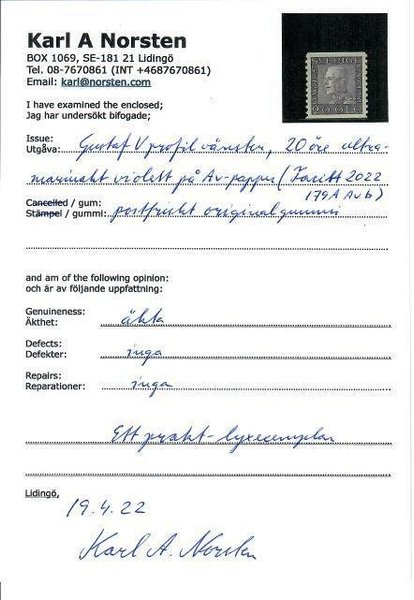 Karl A Norsten
BOX 1069, SE-181 21 Lidingö
Tel. 08-7670861 (INT +4687670861)
Email: karl@norsten.com
I have examined the enclosed;
Jag har undersökt bifogade;
Issue:
Utgåva: Gustaf V profil vänster, 20 öre ultra-
marinakt violett på Av-papper (Facit 2022
179A Avb)
Cancelled / gum:
Stämpel / gummi: postfriskt originalgummi
and am of the following opinion:
och är av följande uppfattning:
Genuineness:
Äkthet: äkta
Defects:
Defekter: inga
Repairs:
Reparationer: inga
Ett prakt-lyxexemplar
Lidingö,
19.4.22
Karl A. Norsten